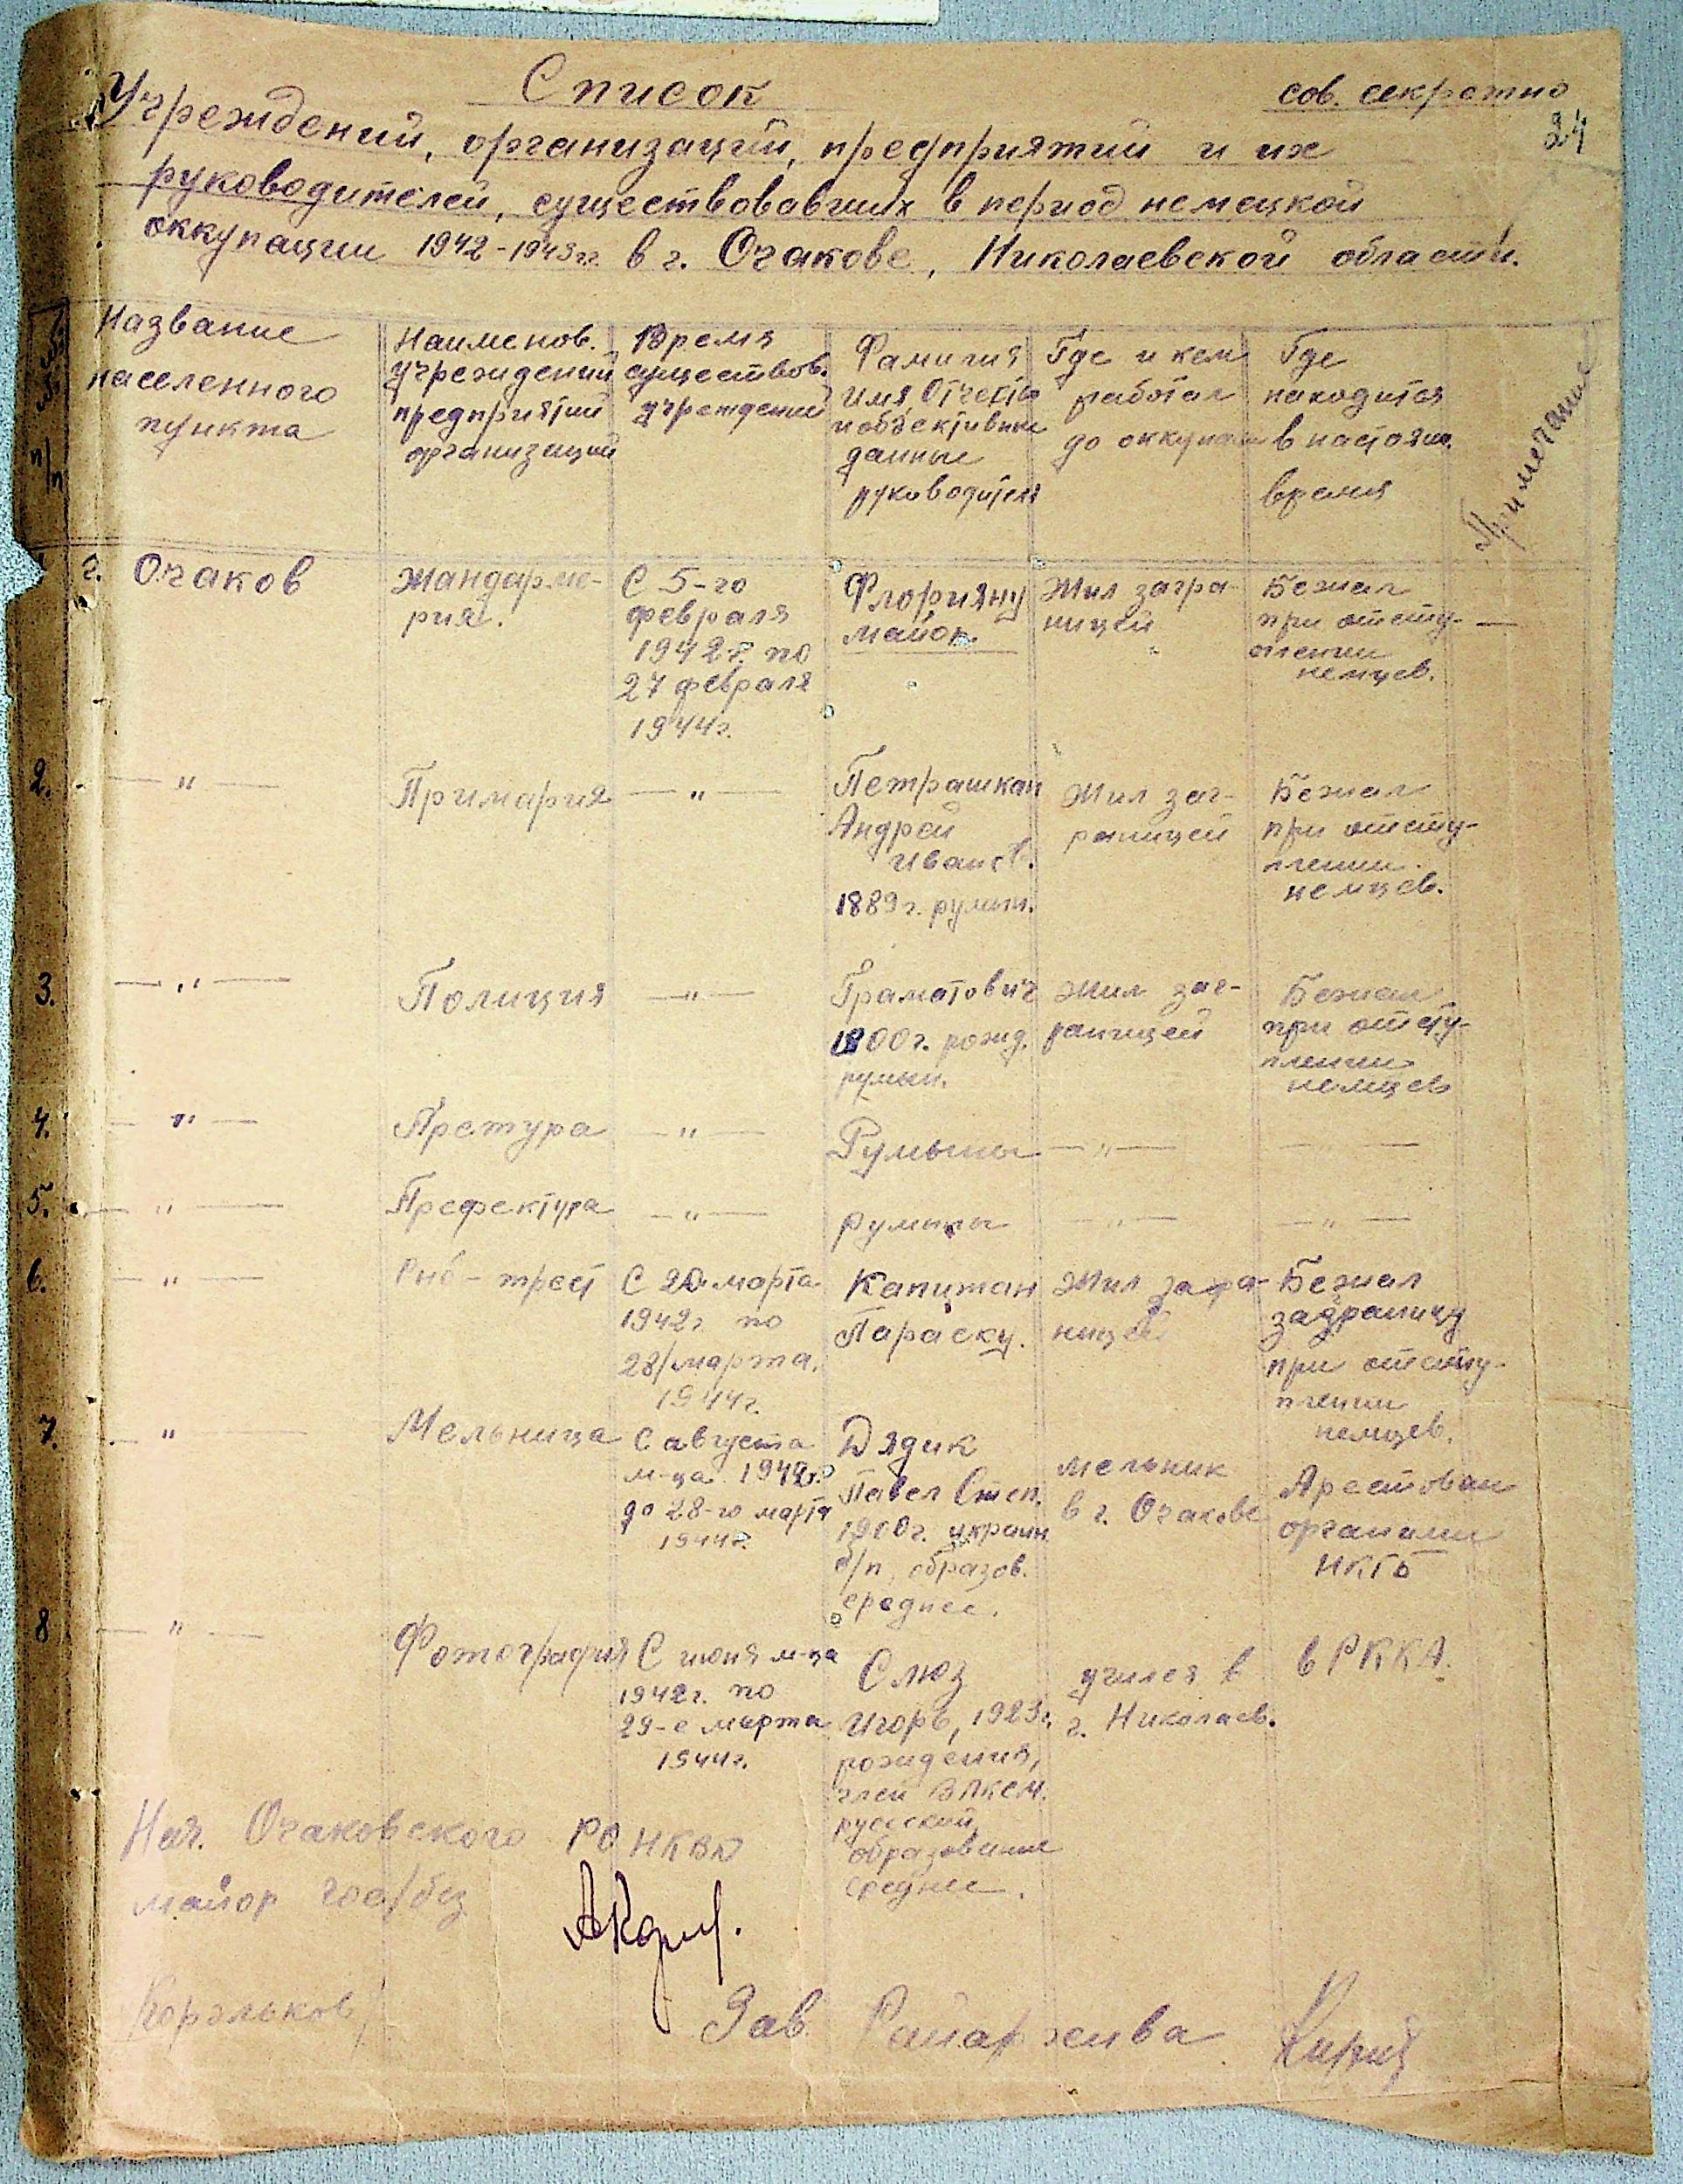 Список
сов. секретно
24
Учреждений, организаций, предприятий и их
руководителей, существовавших в период немецкой
оккупации 1942-1943гг. в г. Очакове, Николаевской области.
№№ п/п
Название
населенного
пункта
Наименов.
учреждений
предприятий
организаций
Время
существов.
учреждений
Фамилия
имя Отчество
и объективные
данные
руководителя
Где и кем
работал
до оккупации
Где
находится
в настоящ.
время
Примечание
г. Очаков
Жандарме-
рия.
С 5-го
февраля
1942г. по
27 февраля
1944г.
Флорияну
майор.
Жил загра-
ницей
Бежал
при отсту-
плении
немцев.
—
2.
— " —
Примария
— " —
Петрашкан
Андрей
Иванов.
1889г. румын.
Жил заг-
раницей
Бежал
при отсту-
плении
немцев.
3.
— " —
Полиция
— " —
Граматович
1900г. рожд.
румын.
Жил заг-
раницей
Бежал
при отсту-
плении
немцев
4.
— " —
Претура
— " —
Румыны
— " —
— " —
5.
— " —
Префектура
— " —
румыны
— " —
— " —
6.
— " —
Рыб-трест
С 20 марта
1942г. по
28/марта.
1944г.
Капитан
Параску.
Жил загра-
ницей
Бежал
заграницу
при отсту-
плении
немцев.
7.
— " —
Мельница
С августа
м-ца 1942г.
до 28-го марта
1944г.
Дядик
Павел Степ.
1900г. украин.
б/п, образов.
среднее.
мельник
в г. Очакове
Арестован
органами
НКГБ
8
— " —
Фотография
С июня м-ца
1942г. по
29-е марта
1944г.
Слюз
Игорь, 1923г.
рождения,
член ВЛКСМ.
русский,
образование
среднее.
учился в
г. Николаев.
в РККА.
Нач. Очаковского РО НКВД
майор гос/без
/Корольков/
Зав. Райархива